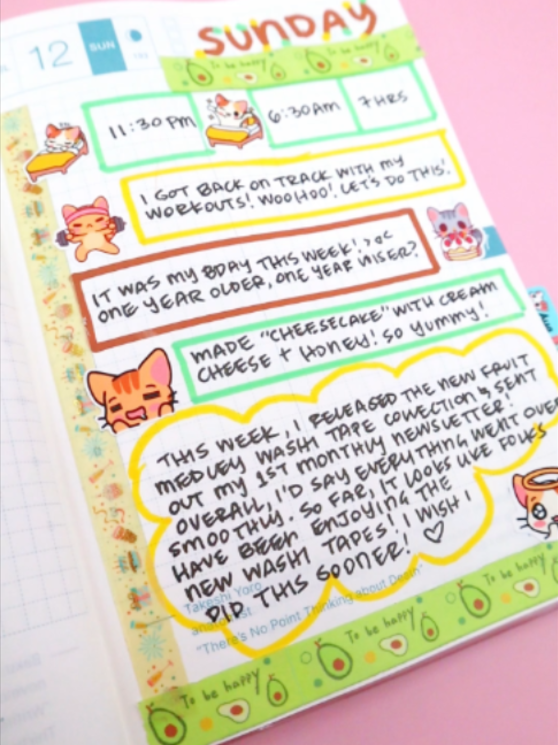 12 SUN
SUNDAY
To be happy
11:30 PM 6:30AM 7 HRS
I GOT BACK ON TRACK WITH MY
WORKOUTS! WOOHOO! LET'S DO THIS!
IT WAS MY BDAY THIS WEEK! >oc
ONE YEAR OLDER, ONE YEAR WISER?
MADE "CHEESECAKE" WITH CREAM
CHEESE + HONEY! SO YUMMY!
THIS WEEK, I RELEASED THE NEW FRUIT
MEDLEY WASHI TAPE COLLECTION & SENT
OUT MY 1ST MONTHLY NEWSLETTER!
OVERALL, I'D SAY EVERYTHING WENT OVER
SMOOTHLY. SO FAR, IT LOOKS LIKE FOLKS
HAVE BEEN ENJOYING THE
NEW WASHI TAPES! I WISH I
DID THIS SOONER! ♡
Takeshi Yoro
"There's No Point Thinking about Death"
To be happy To be happy To be happy